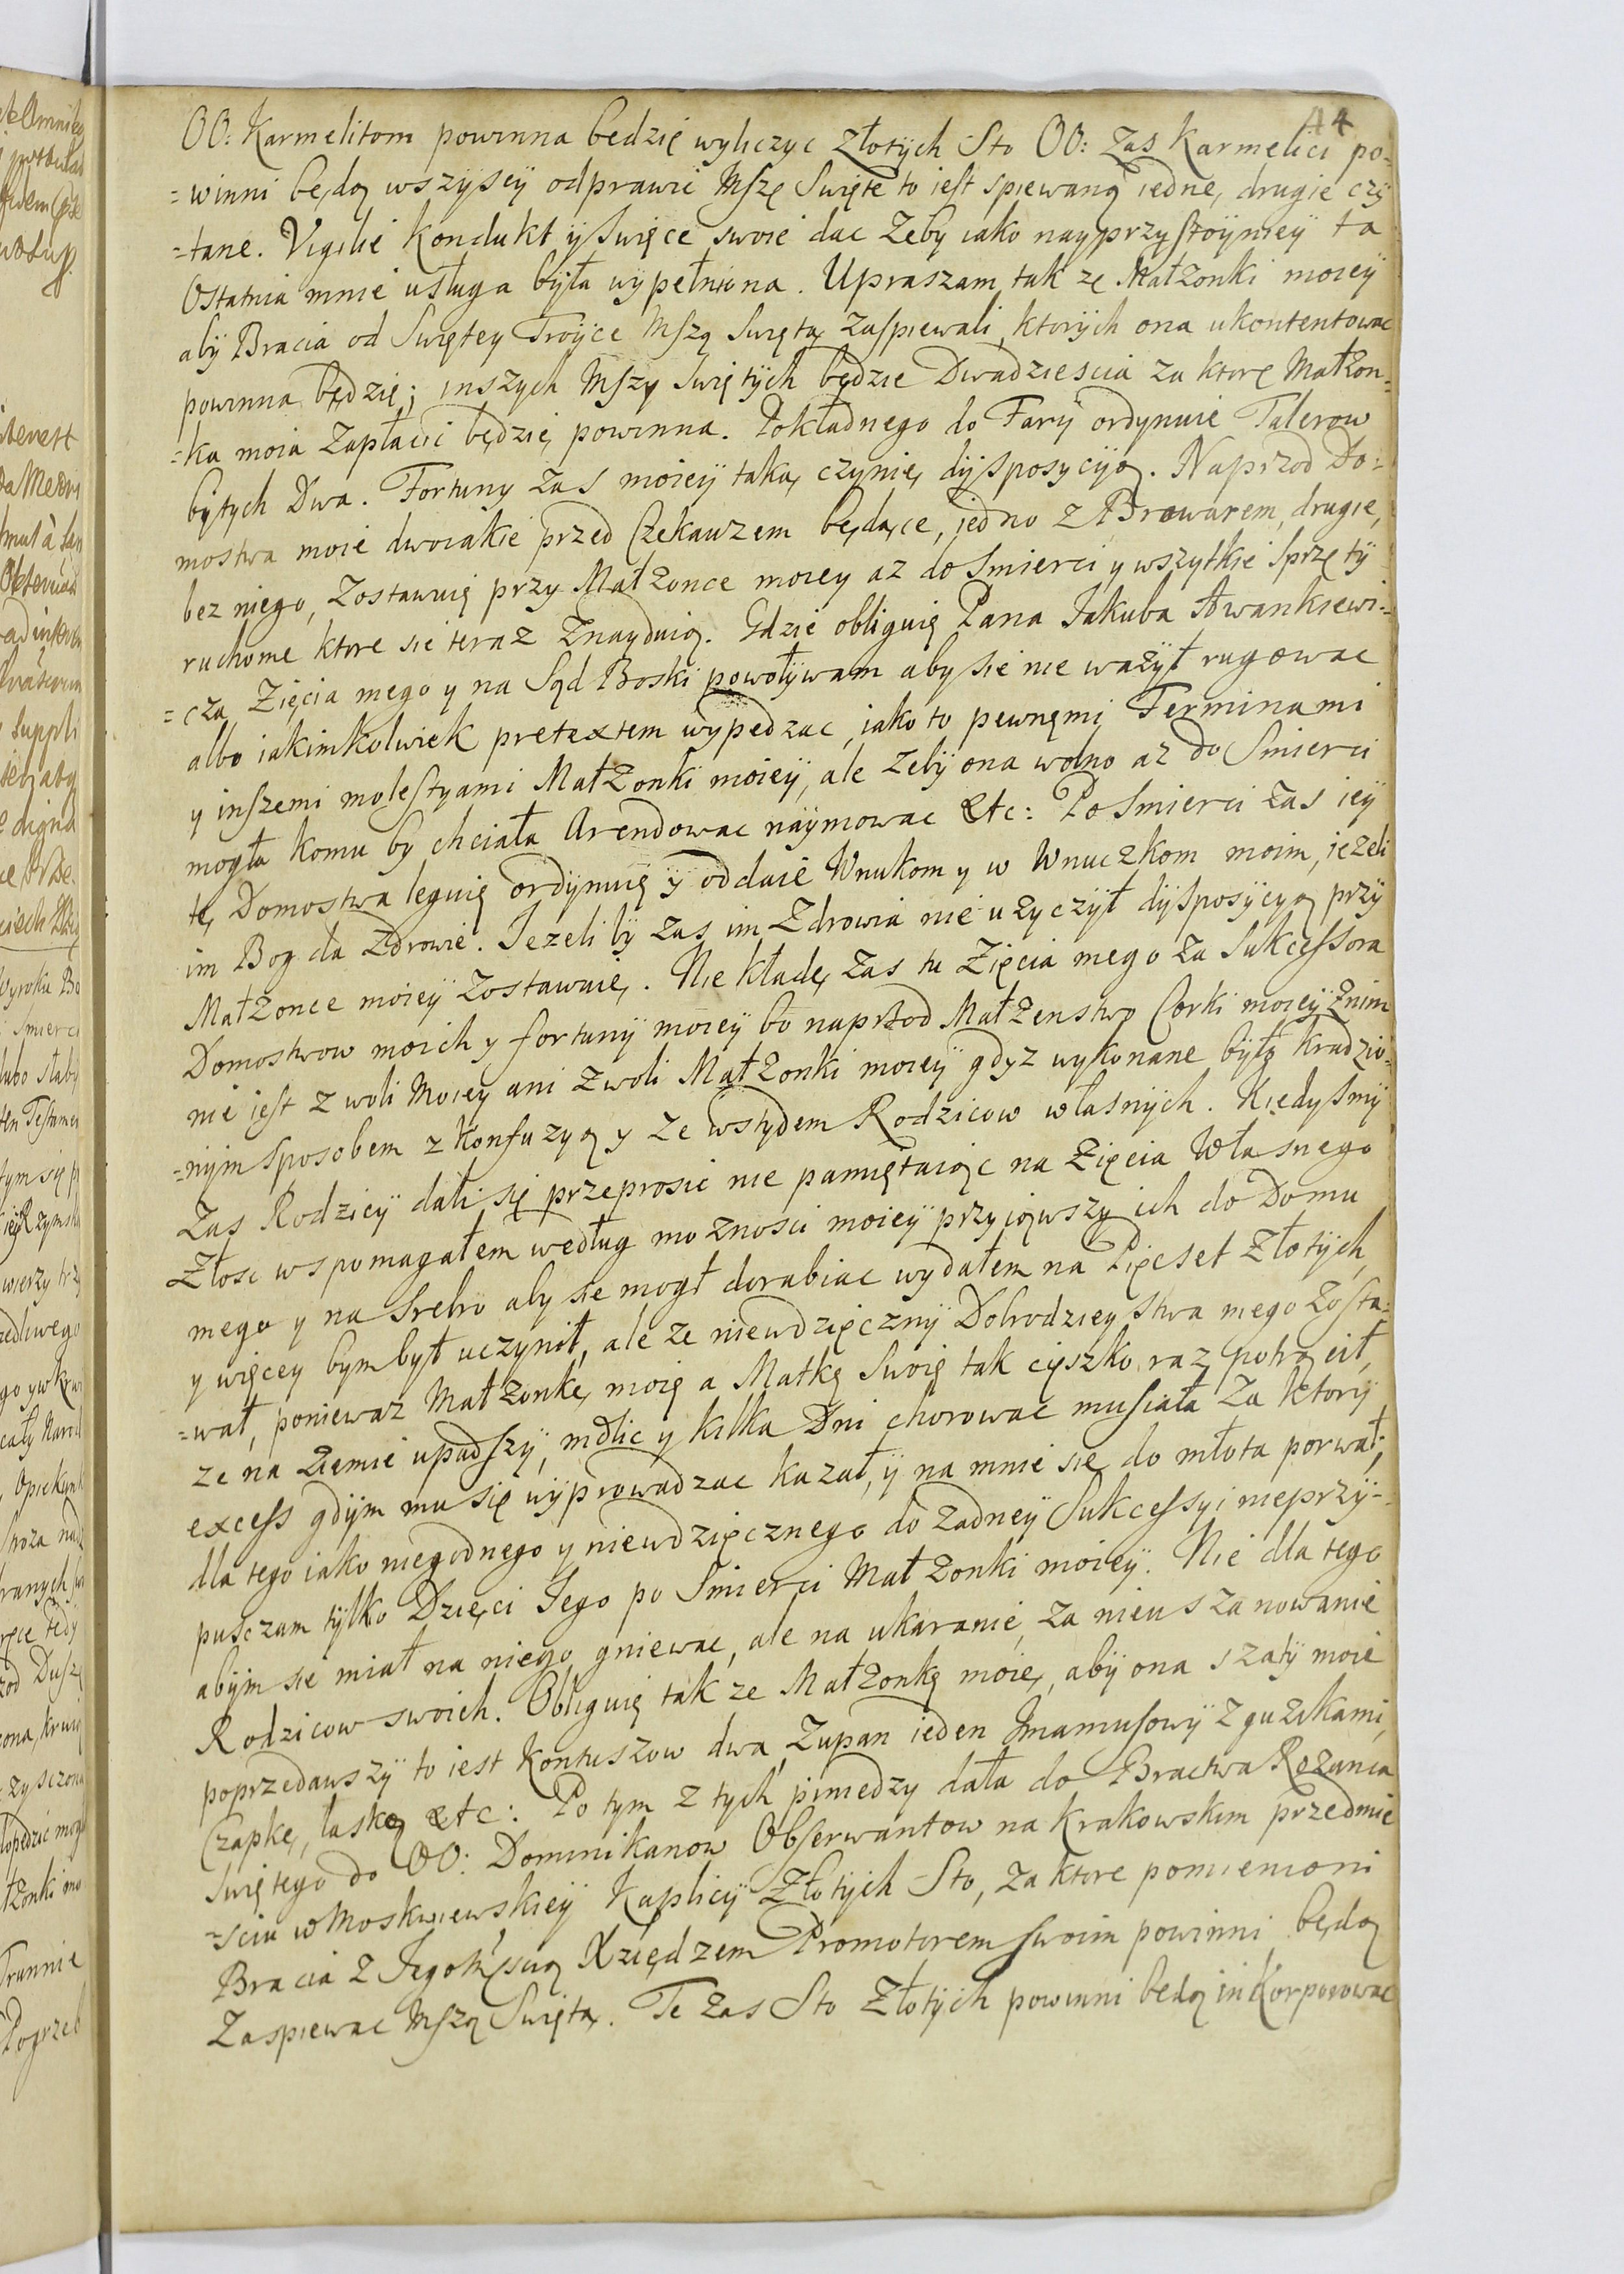 44
OO: Karmelitom powinna będzię wyliczyc Złotych Sto OO: Zas Karmelici po=
=winni będą wszyscy odprawic Mszę Swięte to iest spiewaną iedne, drugie czÿ
=tane. Vigilie Kondukt ÿ Swięce swoie dac Zeby iako nayprzystoÿnieÿ ta
Ostatnia mnie usługa była wypełniona. Upraszam tak ze Małzonki moieÿ
abÿ Bracia od Swiętey Troÿce Mszą Swiętą Zaspiewali, ktorÿch ona ukontentowac
powinna będzię; inszych Mszy Swiętÿch będzie Dwadziescia za ktorę Małzon=
=ka moia Zapłacic będzię powinna. Pokładnego do Farÿ ordynuie Talerow
bÿtych Dwa. Fortuny Zas moieÿ taką czynię dÿsposycyią. Naprzod Do=
mostwa moie dwoiakie przed Czekauzem będące, iedno z Browarem, drugie,
bez niego, Zostawuię przy Małzonce moiey az do Smierci y wszytkie Sprzętÿ
ruchome ktore sie teraz Znayduią. Gdzie obliguię Pana Jakuba Awankiewi=
=cza Zięcia mego y na Sąd Boski powołÿwam aby sie nie wazÿł rugowac
albo iakimkolwiek pretextem wypędzac, iako to pewnęmi Terminami
y inszemi molestyami Małzonki moieÿ, ale Zebÿ ona wolno az do Smierci
mogła komu by chciała Arendowac naÿmowac etc: Po Smierci Zas ieÿ
tę Domostwa leguię ordÿnuię ÿ oddaie Wnukom y w Wnuczkom moim, iezeli
im Bog da Zdrowie. Iezeli bÿ Zas im Zdrowia nie uzyczÿł dÿsposÿcyą przÿ
Małzonce moieÿ Zostawuię. Nie kładę Zas tu Zięcia mego za Sukcessora
Domostwow moich y fortunÿ moieÿ bo naprzod Małzenstwo Corki moieÿ Znim
nie iest z woli Moiey ani z woli Małzonki moieÿ gdyz wykonane było kradzio=
=nÿm sposobem z konfuzyą y ze wstydem Rodzicow własnÿch. Kiedysmÿ
Zas Rodzicÿ dali się przeprosic nie pamiętaiąc na Zięcia Własnego
Złosc wspomagałem według moznosci moieÿ przyiąwszy ich do Domu
mego y na Srebro aby sie mogł dorabiac wydałem na Pięcset Złotÿch,
y więcey bym był uczynił, ale ze niewdzięcznÿ Dobrodzieystwa mego Zosta=
=wał, poniewaz Małzonkę moię a Matkę Swoię tak cięszko raz potrącił,
ze na Ziemię upadszÿ, mdlic y kilka Dni chorowac musiała Za ktorÿ
excess gdÿm mu się wÿprowadzac kazał, ÿ na mnie się do młota porwał;
dla tego iako niegodnego y niewdzięcznego do Zadneÿ Sukcessyi nieprzÿ=
puszczam tylko Dzięci Iego po Smierci Małzonki moieÿ. Nie dla tego
abÿm sie miał na niego gniewac, ale na ukaranie, za nieuszanowanie
Rodzicow swoich. Obliguię tak ze Małzonkę moię, abÿ ona szatÿ moie
poprzedawszÿ to iest Kontuszow dwa, Zupan ieden Jmamusowÿ z guzikami,
Czapkę, laską etc: Po tym z tych pinıedzy dała do Bractwa Rozanca
Swiętego do OO: Dominikanow Obserwantow na Krakowskim przedmie
=sciu w Moskwiewskieÿ Kaplicÿ Złotÿch Sto, za ktore pomienioni
Bracia z Iegomscią Xzięd­zem Promotorem swoim powinni będą
Zaspiewac Mszą Swiętą. Te Zas Sto Złotÿch powinni będą inkorporowac